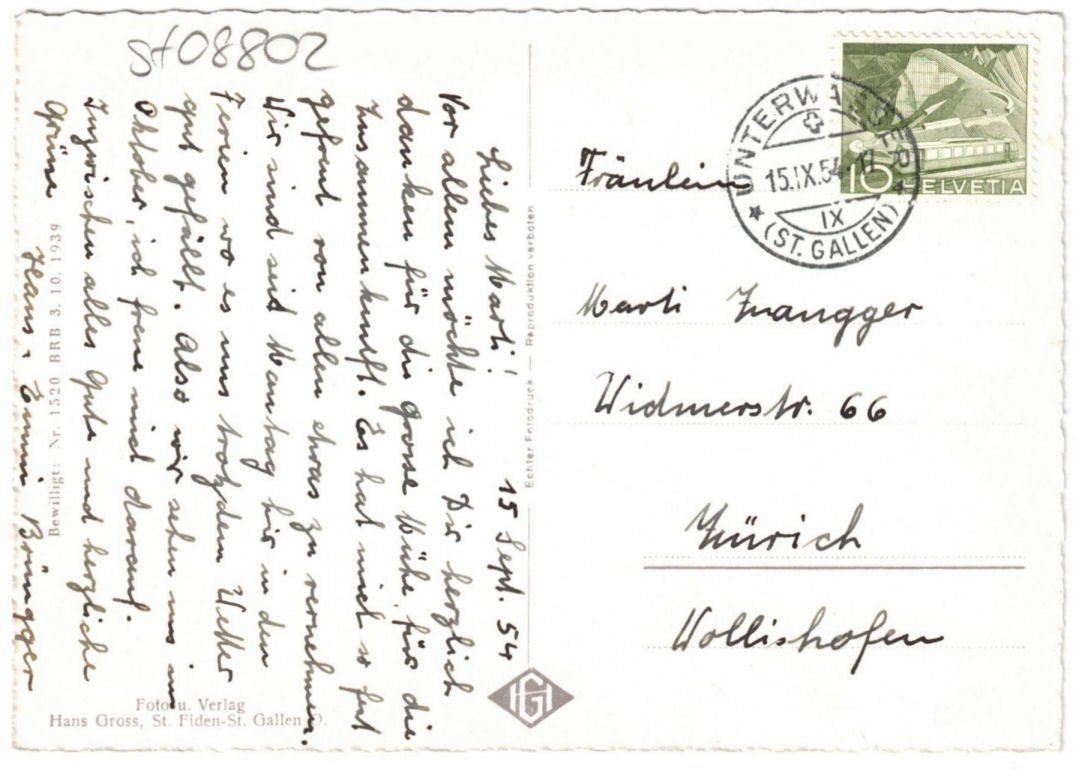 208807S
15 Sept. 54
Liebes Marti!
Vor allem möchte ich Dir herzlich
danken für die grosse Mühe, für die
Zusammenkunft. Es hat mich so fest
gefreut von allen etwas zu vernehmen.
Wir sind seit Montag hir in den
Ferien wo es uns trotzdem Wetter
gut gefällt. Also wir sehen uns im
Oktober, ich freue mich darauf.
Inzwischen alles Gute und herzliche
Grüne
Hans & Emmi Brüngger
Bewilligt: Nr. 1520 BRB 3. 10. 1939
Foto u. Verlag
Hans Gross, St. Fiden-St. Gallen O.
Echter Fotodruck — Reproduktion verboten
HG
UNTERWASSER
15.IX.54-17
IX
(ST. GALLEN)
10 HELVETIA
Fräulein
Marti Zwangger
Widmerstr. 66
Zürich
Wollishofen